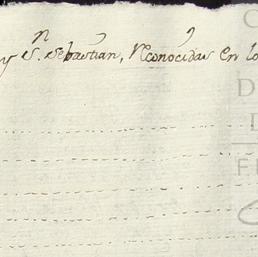 y S.n Sebastian, Reconocidas en lo
C
D
F